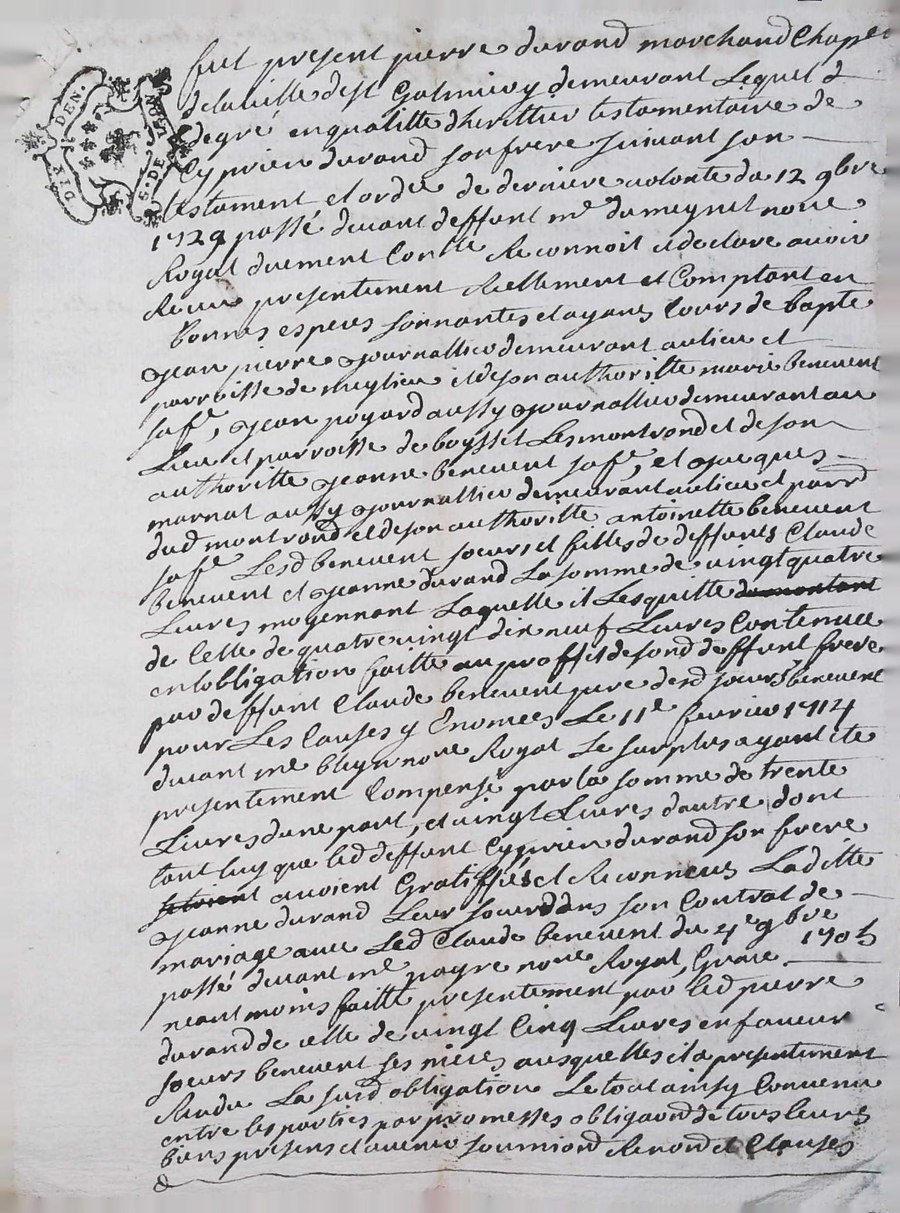 fut present pierre durand marchand Chapel
de la ville de st Galmier y demeurant Lequel de
degré en qualitte dherittier testamentaire de
Cyprien durand son frere suivant son
testament et ordce de derniere volonte du 12 9bre
1729 passé devant deffunt me dumeynet nore
Royal duement Conlle Reconnoit et declare avoir
Receu presentement Reellement et Comptant en
bonnes especes sonnantes et ayant Cours de bapte
Jean pierre Journallier demeurant au lieu et
parroisse de meylieu et de son authoritte marie benevent
sa fe, Jean poyard aussy Journallier demeurant au
Lieu et parroisse de boysset Les montrond et de son
authoritte Jeanne benevent sa fe, et Jacques
marnat aussy Journallier demeurant au lieu et parr
dud montrond et de son authoritte antoinette benevent
sa fe Lesd benevent soeurs et filles de deffunts Claude
benevent et Jeanne durand La somme de vingt quatre
Livres moyennant Laquelle il Les quitte du montant
de Celle de quatre vingt dix neuf Livres Contenue
en Lobligation faitte au proffit de son d deffunt frere
par deffunt Claude benevent pere desd soeurs benevent
pour Les Causes y Enoncées Le 11e fevrier 1714
devant me bleyn nore Royal Le surplus ayant ete
presentement Compensé par la somme de trente
Livres dune part, et vingt Livres dautre dont
tant luy que led deffunt Cyprien durand son frere
avoient Gratiffiés et Reconneus Laditte
Jeanne durand Leur soeur dans son Contrat de
mariage avec Led Claude benevent du 4e 9bre 1705
passé devant me payre nore Royal, Grace
neant moins faitte presentement par led pierre
durand de celle de vingt Cinq Livres en faveur
soeurs benevent ses nieces ausquelles il a presentement
Rendu La susd obligation Le tout ainsy Convenu
entre les parties par promesses obligaond de tous leurs
biens presens et avenir soumiond Renond et Clauses
&